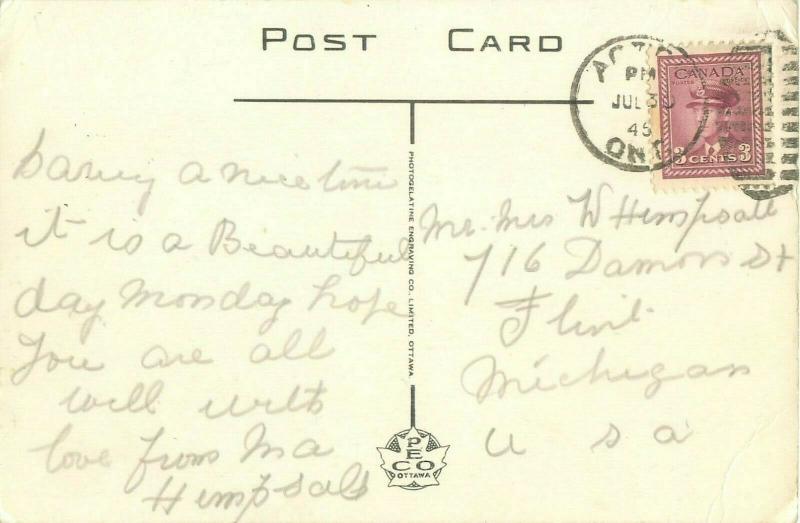 POST CARD
ACTON
PM
JUL 30
45
ONT
CANADA
POSTES POSTAGE
3 CENTS 3
having a nice time
it is a Beautiful
day Monday hope
you are all
well with
love from Ma
Hempsall
PHOTOGELATINE ENGRAVING CO. LIMITED, OTTAWA.
PECO
OTTAWA
Mr. Mrs W Hempsall
716 Damon St
Flint
Michigan
U S A